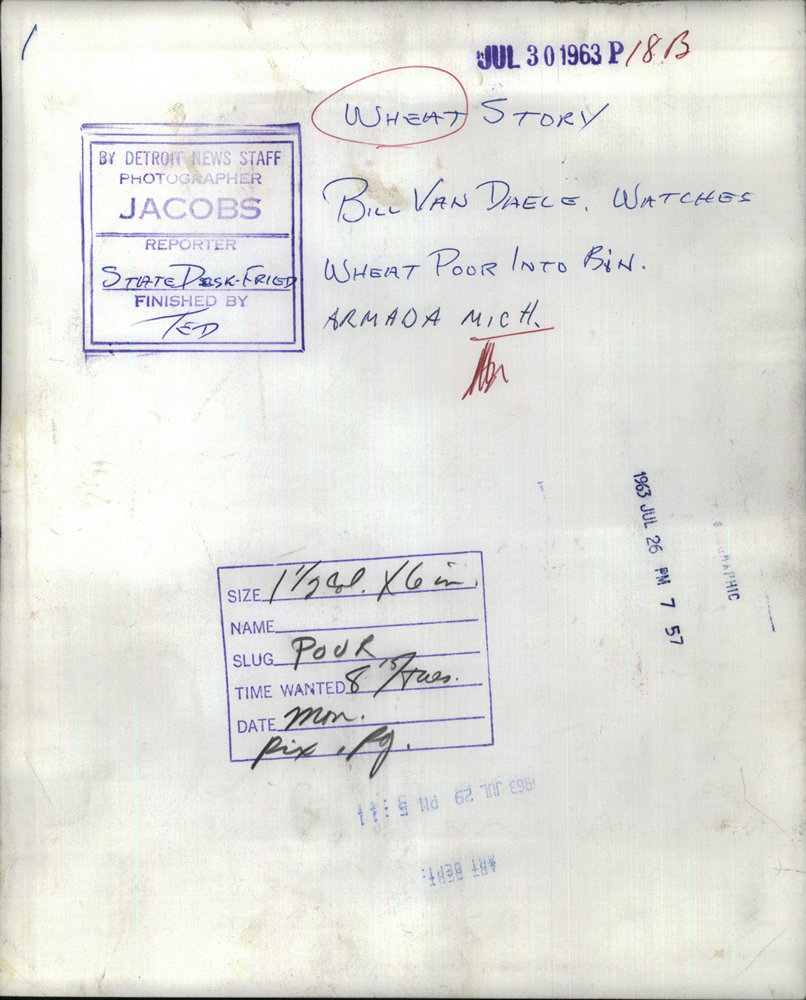 JUL 30 1963 P18B
WHEAT STORY
BY DETROIT NEWS STAFF
PHOTOGRAPHER
JACOBS
REPORTER
STATE DESK-FRIED
FINISHED BY
TED
BILL VAN DAELE, WATCHES
WHEAT POOR INTO BIN.
ARMADA MICH.
1963 JUL 26 PM 7 57
RAPHIC
SIZE 1 1/2 Col. X 6 in.
NAME
SLUG POUR
TIME WANTED 8 15/Tues.
DATE Mon.
pix. pg.
1963 JUL 29 PM 5:11
ART DEPT.